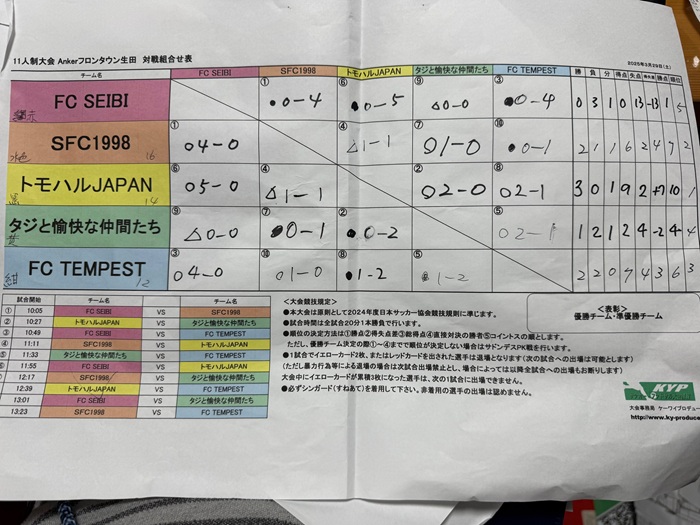 11人制大会 Ankerフロンタウン生田 対戦組合せ表
2025年3月29日(土)
チーム名 FC SEIBI SFC1998 トモハルJAPAN タジと愉快な仲間たち FC TEMPEST 勝 負 分 得点 失点 得失差 勝点 順位
FC SEIBI ① ●0-4 ⑥ ●0-5 ⑨ △0-0 ③ ●0-4 0 3 1 0 13 -13 1 5
SFC1998 水色 16 ① ○4-0 ④ △1-1 ⑦ ○1-0 ⑩ ●0-1 2 1 1 6 2 4 7 2
トモハルJAPAN 黒 14 ⑥ ○5-0 ④ △1-1 ② ○2-0 ⑧ ○2-1 3 0 1 9 2 +7 10 1
タジと愉快な仲間たち 黄 ⑨ △0-0 ⑦ ●0-1 ② ●0-2 ⑤ ○2-1 1 2 1 2 4 -2 4 4
FC TEMPEST 紺 12 ③ ○4-0 ⑩ ○1-0 ⑧ ●1-2 ⑤ ●1-2 2 2 0 7 4 3 6 3
試合開始 チーム名 VS チーム名
① 10:05 FC SEIBI VS SFC1998
② 10:27 トモハルJAPAN VS タジと愉快な仲間たち
③ 10:49 FC SEIBI VS FC TEMPEST
④ 11:11 SFC1998 VS トモハルJAPAN
⑤ 11:33 タジと愉快な仲間たち VS FC TEMPEST
11:55 FC SEIBI VS トモハルJAPAN
12:17 SFC1998 VS タジと愉快な仲間たち
12:39 トモハルJAPAN VS FC TEMPEST
13:01 FC SEIBI VS タジと愉快な仲間たち
13:23 SFC1998 VS FC TEMPEST
<大会競技規定>
●本大会は原則として2024年度日本サッカー協会競技規則に準じます。
●試合時間は全試合20分1本勝負で行います。
●順位の決定方法は①勝点②得失点差③総得点④直接対決の勝者⑤コイントスの順とします。
ただし、優勝チーム決定の際①~④までで順位が決定しない場合はサドンデスPK戦を行います。
●1試合でイエローカード2枚、またはレッドカードを出された選手は退場となります(次の試合への出場は可能とします)
(ただし暴力行為等による退場の場合は次試合出場禁止とし、場合によっては以降全試合への出場もお断りします)
大会中にイエローカードが累積3枚になった選手は、次の1試合に出場できません。
●必ずシンガード(すねあて)を着用して下さい。非着用の選手の出場は認めません。
<表彰>
優勝チーム・準優勝チーム
KYP
大会事務局 ケーワイプロデュー
http://www.ky-produce